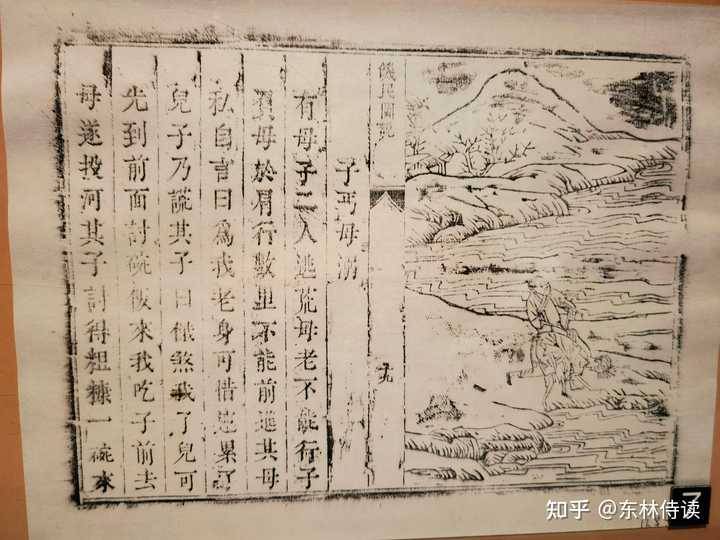 饑民圖說
十九
子丐母溺
有母子二人逃荒母老不能行子
負母於肩行數里不能前進其母
私自言曰為我老身可惜連累了
兒子乃謊其子曰餓煞我了兒可
先到前面討碗飯來我吃子前去
母遂投河其子討得粗糠一碗來
7
知乎 @东林侍读